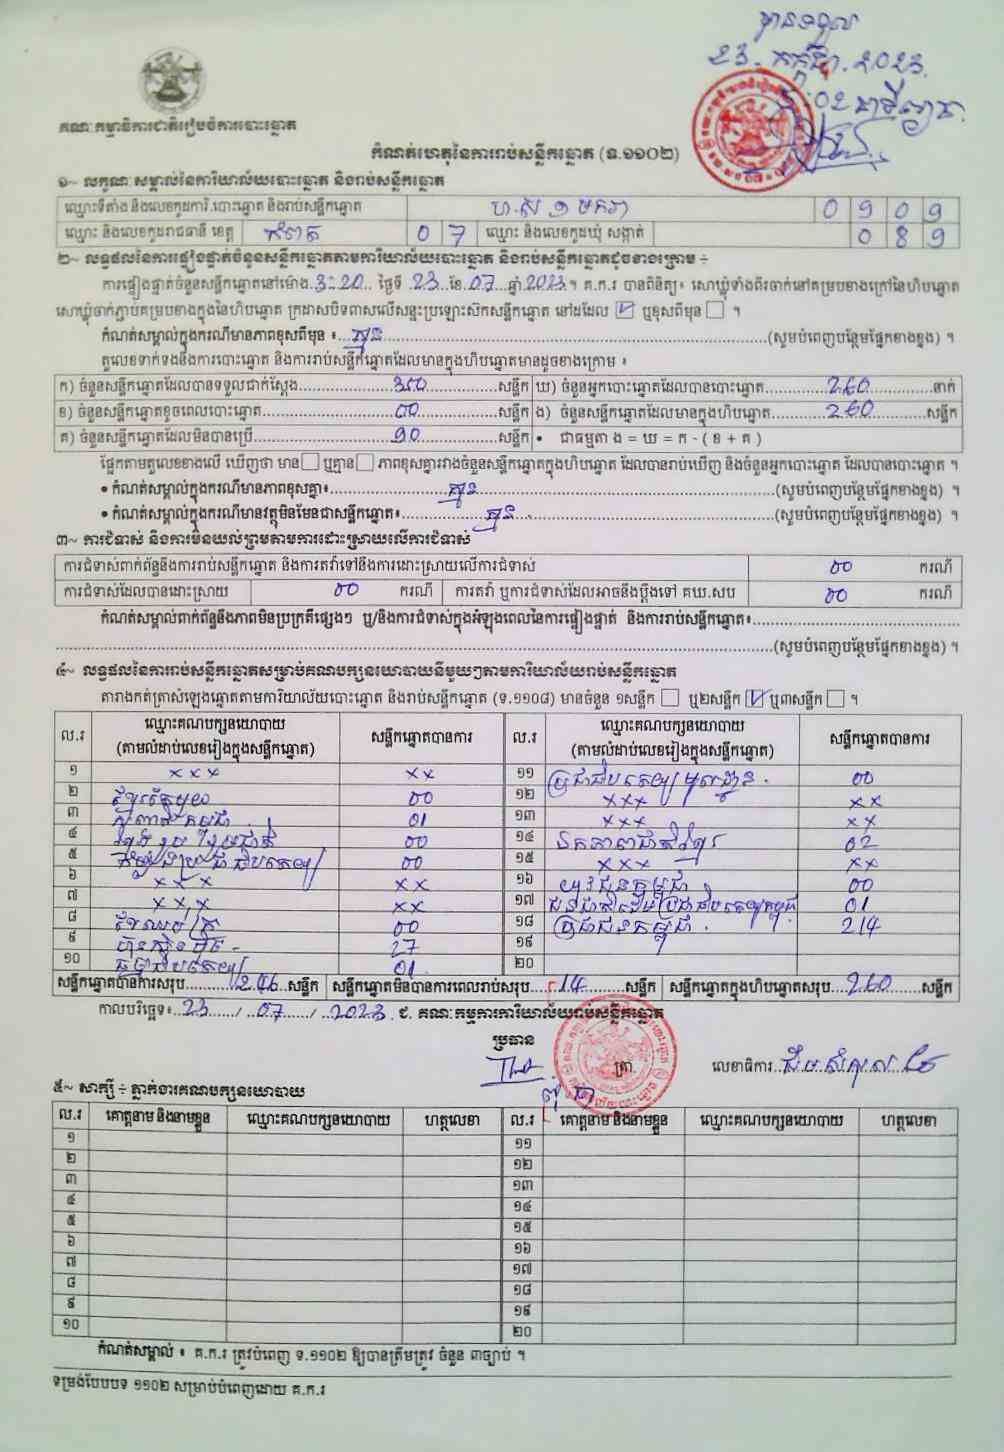 បានទទួល
23.កក្កដា.2023.
គណៈកម្មាធិការជាតិរៀបចំការបោះឆ្នោត
កំណត់ហេតុនៃការរាប់សន្លឹកឆ្នោត (ទ.១១០២)
១~ លក្ខណៈសម្គាល់នៃការិយាល័យបោះឆ្នោត និងរាប់សន្លឹកឆ្នោត
ឈ្មោះទីតាំង និងលេខកូដការិ.បោះឆ្នោត និងរាប់សន្លឹកឆ្នោត ហ.ស ១ មករា 0 9 0 9
ឈ្មោះ និងលេខកូដរាជធានី ខេត្ត កំពត 0 7 ឈ្មោះ និងលេខកូដឃុំ សង្កាត់ 0 8 9
២~ លទ្ធផលនៃការផ្ទៀងផ្ទាត់ចំនួនសន្លឹកឆ្នោតតាមការិយាល័យបោះឆ្នោត និងរាប់សន្លឹកឆ្នោតដូចខាងក្រោម ÷
ការផ្ទៀងផ្ទាត់ចំនួនសន្លឹកឆ្នោតនៅម៉ោង.3:20.. ថ្ងៃទី .23..ខែ.07..ឆ្នាំ.2023.។ គ.ក.រ បានពិនិត្យ៖ សោឃ្មុំទាំងពីរចាក់នៅគម្របខាងក្រៅនៃហិបឆ្នោត
សោឃ្មុំចាក់ភ្ជាប់គម្របខាងក្នុងនៃហិបឆ្នោត ក្រដាសបិទពាសលើសន្ទះប្រឡោះស៊កសន្លឹកឆ្នោត នៅដដែល ☑ ឬខុសពីមុន ☐ ។
កំណត់សម្គាល់ក្នុងករណីមានភាពខុសពីមុន ៖...គ្មាន...(សូមបំពេញបន្ថែមផ្នែកខាងខ្នង) ។
តួលេខទាក់ទងនឹងការបោះឆ្នោត និងការរាប់សន្លឹកឆ្នោតដែលមានក្នុងហិបឆ្នោតមានដូចខាងក្រោម ៖
ក) ចំនួនសន្លឹកឆ្នោតដែលបានទទួលជាក់ស្តែង...350...សន្លឹក ឃ) ចំនួនអ្នកបោះឆ្នោតដែលបានបោះឆ្នោត...260...នាក់
ខ) ចំនួនសន្លឹកឆ្នោតខូចពេលបោះឆ្នោត...00...សន្លឹក ង) ចំនួនសន្លឹកឆ្នោតដែលមានក្នុងហិបឆ្នោត...260...សន្លឹក
គ) ចំនួនសន្លឹកឆ្នោតដែលមិនបានប្រើ...90...សន្លឹក • ជាធម្មតា ង = ឃ = ក - ( ខ + គ )
ផ្អែកតាមតួលេខខាងលើ ឃើញថា មាន☐ ឬគ្មាន☐ ភាពខុសគ្នារវាងចំនួនសន្លឹកឆ្នោតក្នុងហិបឆ្នោត ដែលបានរាប់ឃើញ និងចំនួនអ្នកបោះឆ្នោត ដែលបានបោះឆ្នោត ។
• កំណត់សម្គាល់ក្នុងករណីមានភាពខុសគ្នា៖...គ្មាន...(សូមបំពេញបន្ថែមផ្នែកខាងខ្នង) ។
• កំណត់សម្គាល់ក្នុងករណីមានវត្ថុមិនមែនជាសន្លឹកឆ្នោត៖...គ្មាន...(សូមបំពេញបន្ថែមផ្នែកខាងខ្នង) ។
៣~ ការជំទាស់ និងការមិនយល់ព្រមតាមការដោះស្រាយលើការជំទាស់
ការជំទាស់ពាក់ព័ន្ធនឹងការរាប់សន្លឹកឆ្នោត និងការតវ៉ាទៅនឹងការដោះស្រាយលើការជំទាស់ 00 ករណី
ការជំទាស់ដែលបានដោះស្រាយ 00 ករណី ការតវ៉ា ឬការជំទាស់ដែលអាចនឹងប្តឹងទៅ គឃ.សប 00 ករណី
កំណត់សម្គាល់ពាក់ព័ន្ធនឹងភាពមិនប្រក្រតីផ្សេងៗ ឬ/និងការជំទាស់ក្នុងអំឡុងពេលនៃការផ្ទៀងផ្ទាត់ និងការរាប់សន្លឹកឆ្នោត៖...
...(សូមបំពេញបន្ថែមផ្នែកខាងខ្នង) ។
៤~ លទ្ធផលនៃការរាប់សន្លឹកឆ្នោតសម្រាប់គណបក្សនយោបាយនីមួយៗតាមការិយាល័យរាប់សន្លឹកឆ្នោត
តារាងកត់ត្រាសំឡេងឆ្នោតតាមការិយាល័យបោះឆ្នោត និងរាប់សន្លឹកឆ្នោត (ទ.១១០៨) មានចំនួន ១សន្លឹក ☐ ឬ២សន្លឹក ☑ ឬ៣សន្លឹក ☐ ។
ល.រ ឈ្មោះគណបក្សនយោបាយ (តាមលំដាប់លេខរៀងក្នុងសន្លឹកឆ្នោត) សន្លឹកឆ្នោតបានការ ល.រ ឈ្មោះគណបក្សនយោបាយ (តាមលំដាប់លេខរៀងក្នុងសន្លឹកឆ្នោត) សន្លឹកឆ្នោតបានការ
១ xxx xx ១១ ប្រជាធិបតេយ្យមូលដ្ឋាន. 00
២ 00 ១២ xxx xx
៣ 01 ១៣ xxx xx
៤ ខ្មែររួបរួមជាតិ 00 ១៤ ឯកភាពជាតិខ្មែរ 02
៥ កម្លាំងប្រជាធិបតេយ្យ 00 ១៥ xxx xx
៦ xxx xx ១៦ យុវជនកម្ពុជា 00
៧ xxx xx ១៧ ជនជាតិដើមប្រជាធិបតេយ្យកម្ពុជា 01
៨ ខ្មែរឈប់ក្រ 00 ១៨ ប្រជាជនកម្ពុជា. 214
៩ ហ៊្វុនស៊ិនប៉ិច 27 ១៩
១០ ធម្មាធិបតេយ្យ 01 ២០
សន្លឹកឆ្នោតបានការសរុប...246...សន្លឹក សន្លឹកឆ្នោតមិនបានការពេលរាប់សរុប...14...សន្លឹក សន្លឹកឆ្នោតក្នុងហិបឆ្នោតសរុប...260...សន្លឹក
កាលបរិច្ឆេទ៖..23..../...07..../..2023 ជ. គណៈកម្មការការិយាល័យរាប់សន្លឹកឆ្នោត
ប្រធាន
ត្រា លេខាធិការ
៥~ សាក្សី ÷ ភ្នាក់ងារគណបក្សនយោបាយ
ល.រ គោត្តនាម និងនាមខ្លួន ឈ្មោះគណបក្សនយោបាយ ហត្ថលេខា ល.រ គោត្តនាម និងនាមខ្លួន ឈ្មោះគណបក្សនយោបាយ ហត្ថលេខា
១ ១១
២ ១២
៣ ១៣
៤ ១៤
៥ ១៥
៦ ១៦
៧ ១៧
៨ ១៨
៩ ១៩
១០ ២០
កំណត់សម្គាល់ ៖ គ.ក.រ ត្រូវបំពេញ ទ.១១០២ ឱ្យបានត្រឹមត្រូវ ចំនួន ៣ច្បាប់ ។
ទម្រង់បែបបទ ១១០២ សម្រាប់បំពេញដោយ គ.ក.រ